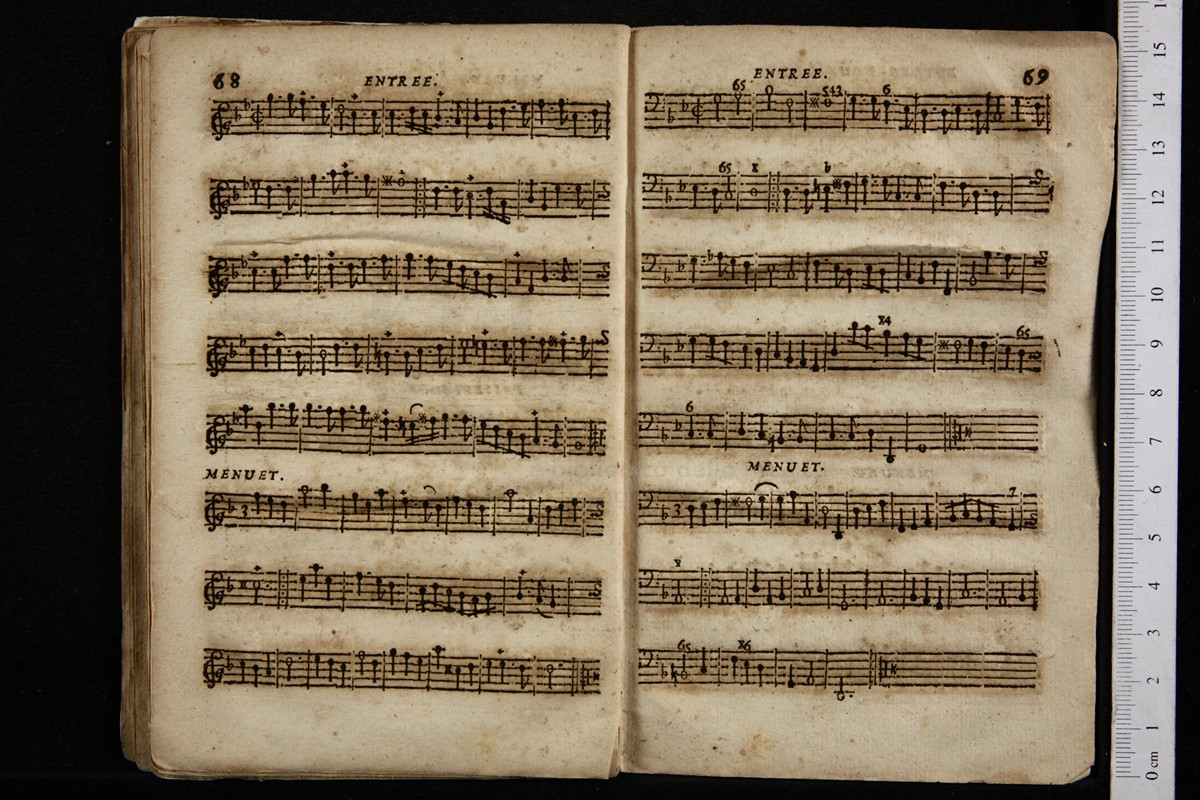 68
ENTREE.
MENUET.
3
ENTREE.
69
65
543
6
65
x
b
b
x4
65
6
MENUET.
3
7
x
65
x6
15
14
13
12
11
10
9
8
7
6
5
4
3
2
1
0 cm